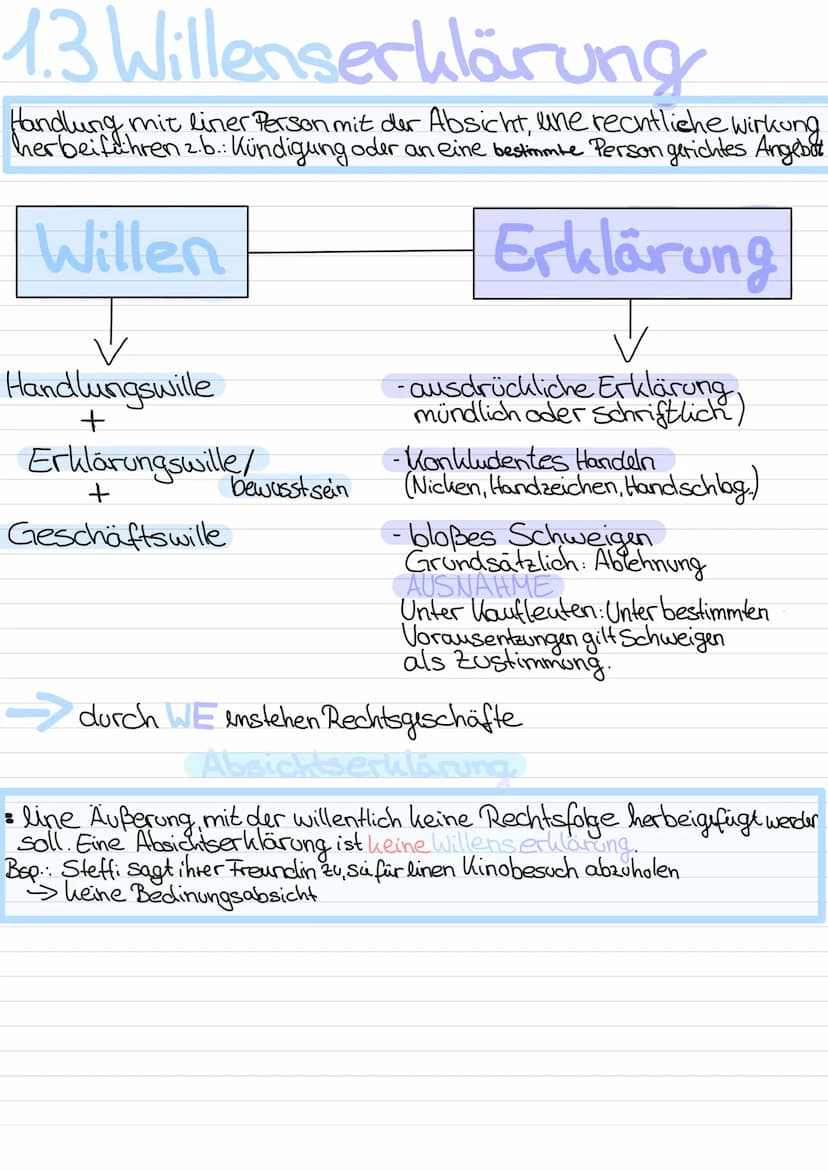 1.3 Willenserklärung
Handlung, mit einer Person mit der Absicht, eine rechtliche Wirkung
herbeiführen z.b.: Kündigung oder an eine bestimmte Person gerichtes Angebot
Willen
Erklärung
Handlungswille
+
Erklärungswille/
bewusstsein
+
Geschäftswille
- ausdrückliche Erklärung,
mündlich oder schriftlich)
- Konkludentes Handeln
(Nicken, Handzeichen, Handschlag.)
- bloßes Schweigen
Grundsätzlich: Ablehnung
AUSNAHME
Unter Kaufleuten: Unter bestimmten
Vorausentzungen gilt Schweigen
als Zustimmung.
→ durch WE enstehen Rechtsgeschäfte
Absichtserklärung
: Eine Äußerung, mit der willentlich keine Rechtsfolge herbeigefügt werden
soll. Eine Absichtserklärung ist keine Willenserklärung.
Bsp.: Steffi sagt ihrer Freundin zu, sie für einen Kinobesuch abzuholen
→ keine Bedinungsabsicht